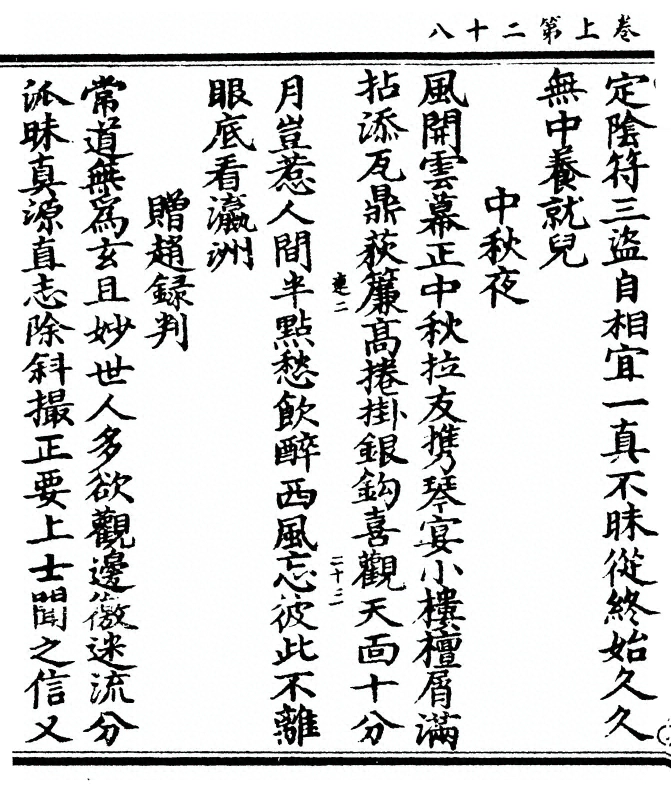 卷上第二十八
定陰符三盜自相宜一真不昧從終始久久
無中養就兒
中秋夜
風開雲幕正中秋拉友攜琴宴小樓檀屑滿
拈添瓦鼎荻簾高捲掛銀鈎喜觀天面十分
連二
二十三
月豈惹人間半點愁飲醉西風忘彼此不離
眼底看瀛洲
贈趙録判
常道無為玄且妙世人多欲觀邊徼迷流分
派昧真源直志除斜撮正要上士聞之信又